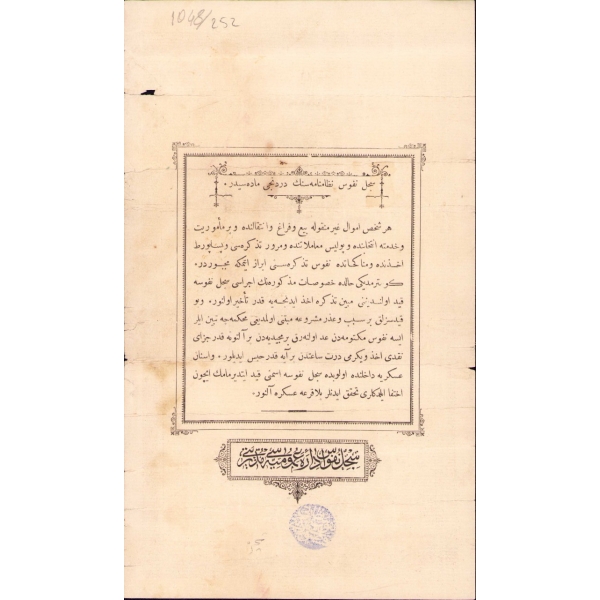 1048/252
سجل نفوس نظامنامه سنك دردنجی ماده سیدر •
هر شخص اموال غیر منقوله بیع و فراغ و انتقالنده و بر مأموریت
و خدمته انتخابنده و پولیس معاملاتنده و مرور تذکره سی و پساپورط
اخذنده و مناکحاتنده نفوس تذکره سنی ابراز ایتمکه مجبوردر •
کوسترمدیکی حالده خصوصات مذکوره نك اجراسی سجل نفوسه
قید اولندیغنی مبین تذکره اخذ ایدنجه یه قدر تأخیر اولنور • و بو
قیدسزلق بر سبب و عذر مشروعه مبنی اولمدیغی محکمه جه تبین ایلر
ایسه نفوس مکتومه دن عد اولنه رق بر مجیدیه دن بر آلتونه قدر جزای
نقدی اخذ و یکرمی درت ساعتدن بر آیه قدر حبس ایدیلور • و اسنان
عسکریه داخلنده اولوبده سجل نفوسه اسمنی قید ایتدیرمامك ایچون
اختفا ایلدکلری تحقق ایدنلر بلا قرعه عسکره آلنور •
سجل نفوس اداره عمومیه سی مدیریتی